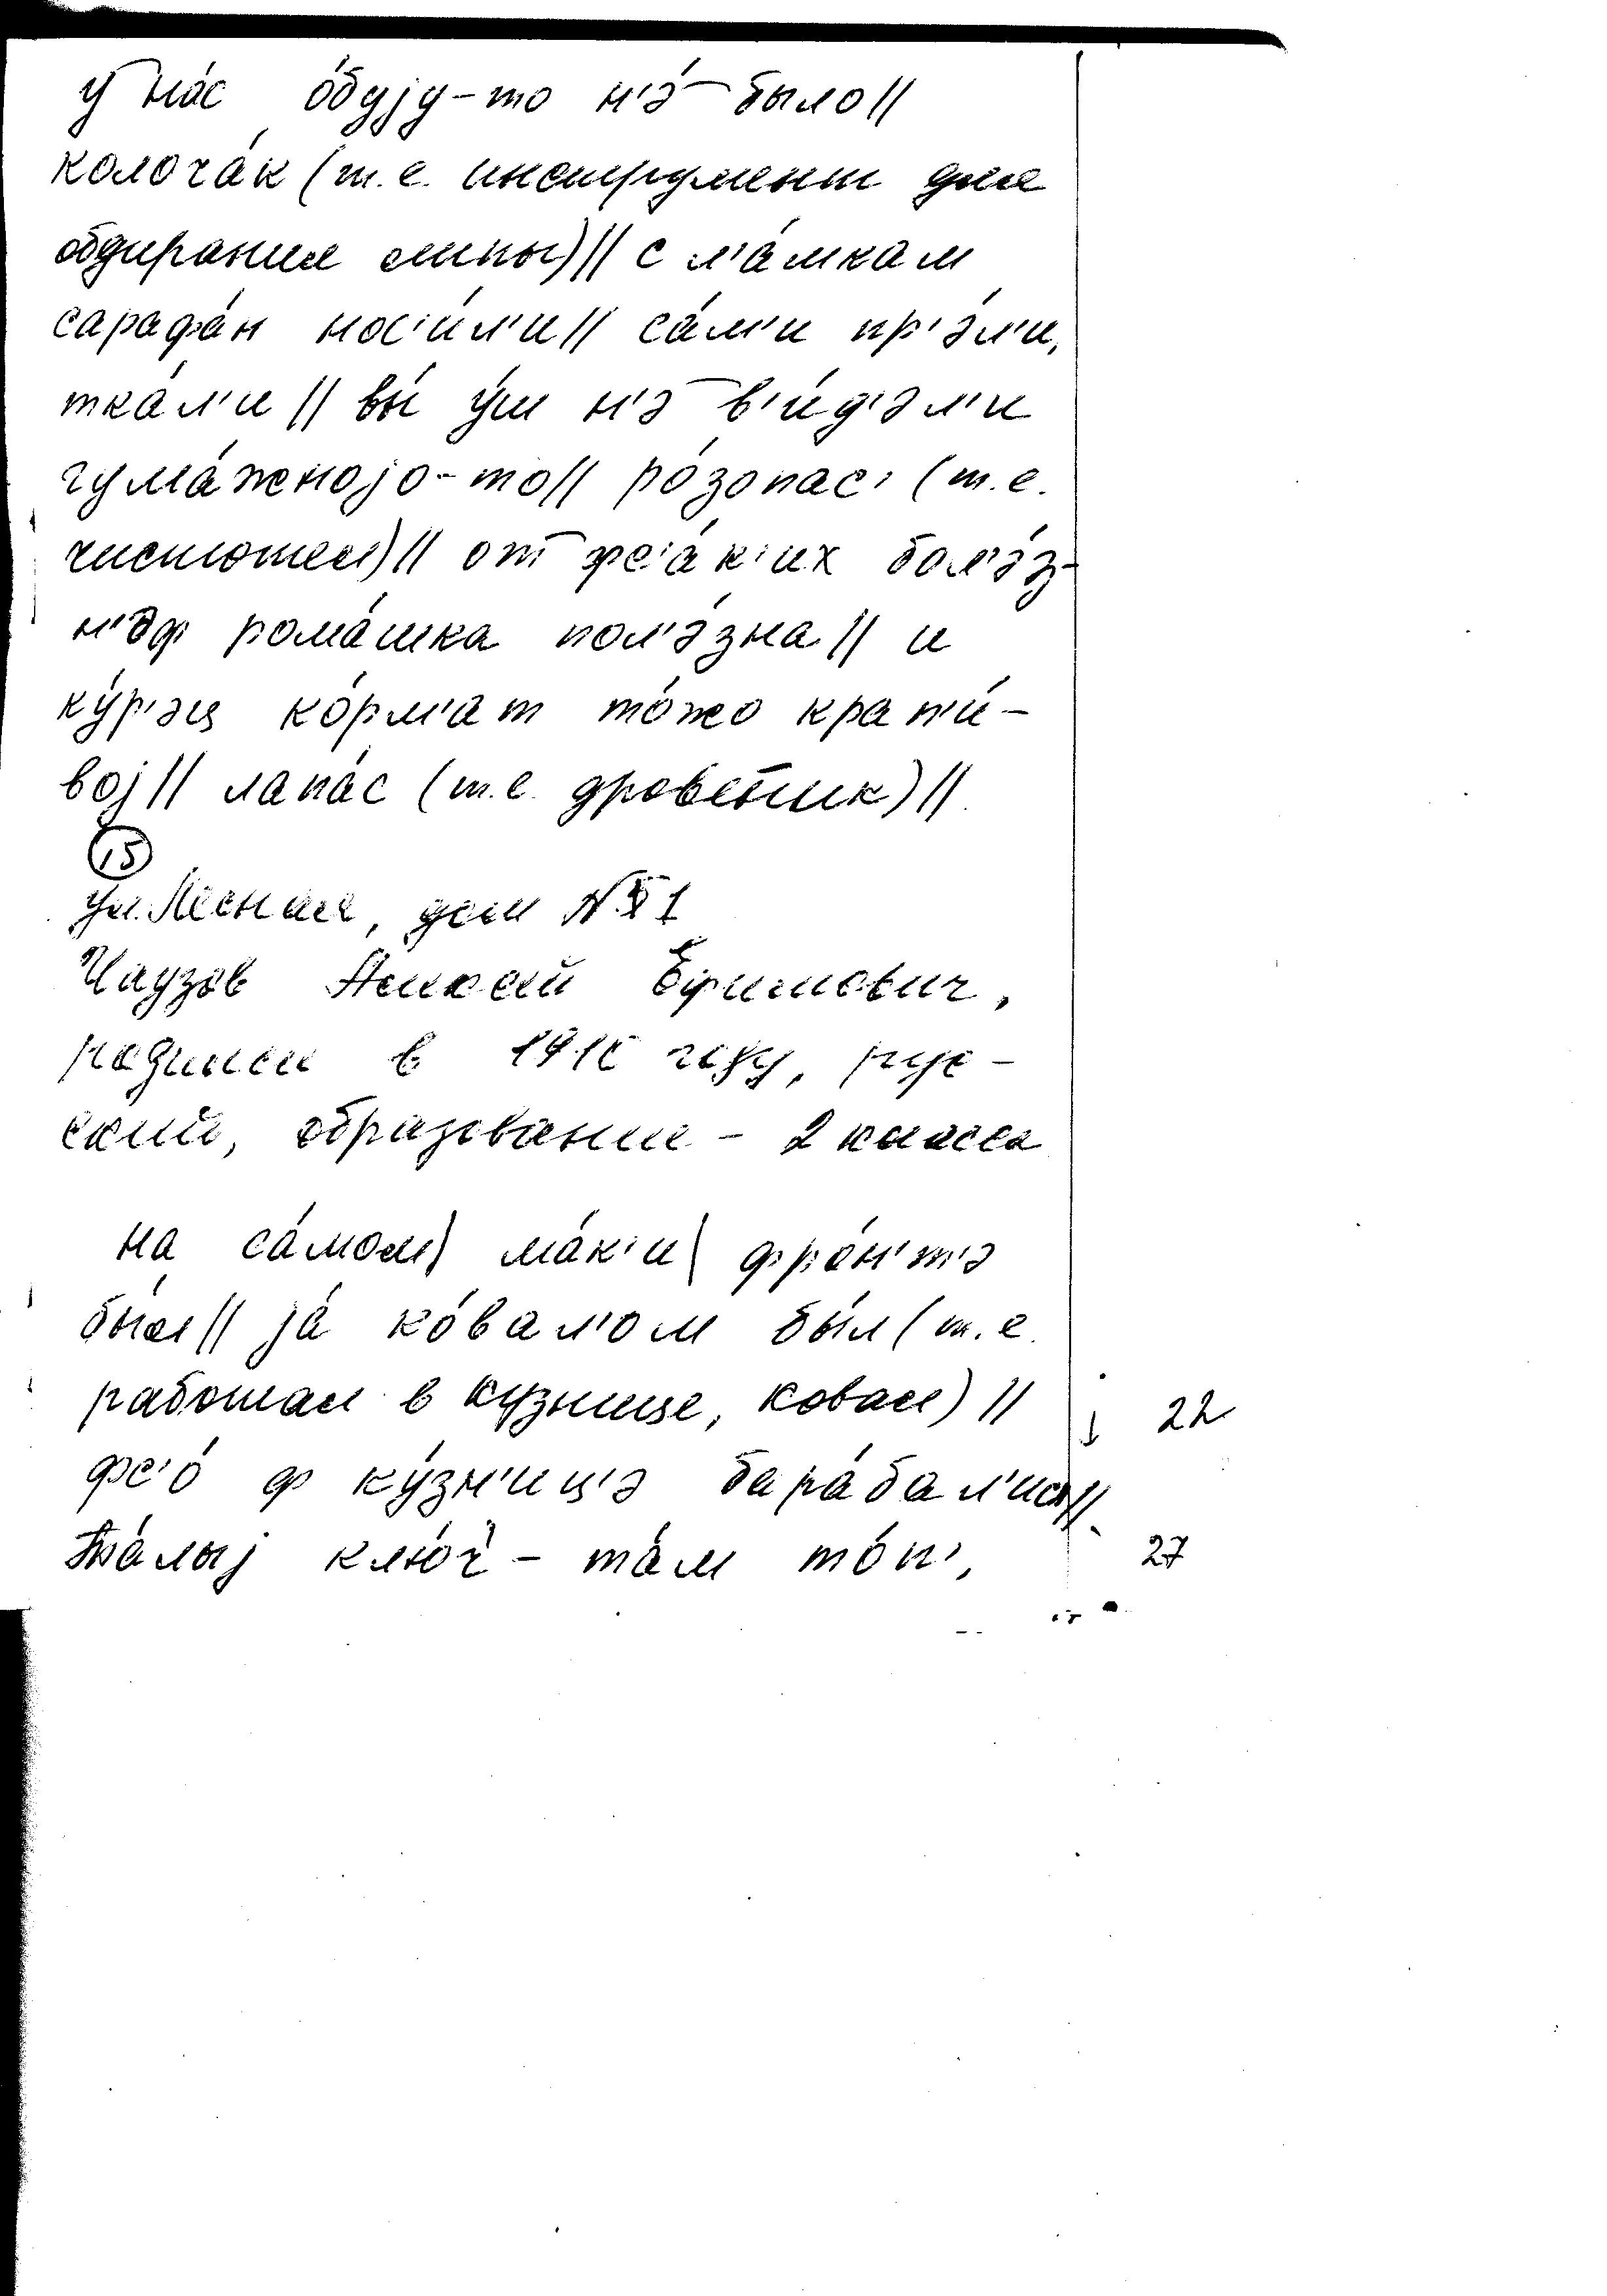 у нáс óбуjу-то н'э́ было//
колочáк (т.е. инструмент для
обдирания липы)// с л'áмкам
сарафáн нос'и́л'и// сáм'и пр'э́л'и,
ткáл'и // вы́ у́ш н'э в'и́д'эл'и
гумáжноjо-то// рóзопас' (т.е.
чистотел)// от фс'áк'их бол'э́з-
н'эф ромáшка пол'э́зна // и
ку́р'эц кóрм'ат тóжо крап'и́-
воj// лапáс (т.е. дровеник) //
15
ул. Лесная, дом № 1
Чаузов Алексей Ефимович,
родился в году, рус-
ский, образование - 2 класса
на сáмом мáк'и фрóн'т'э
был// já кóвал'ом бы́л (т.е.
работал в кузнице, ковал) //
фс'ó ф ку́зн'иц'э барáбал'ис//
Тáлыj клю́ч - тáм тóп',
22
27